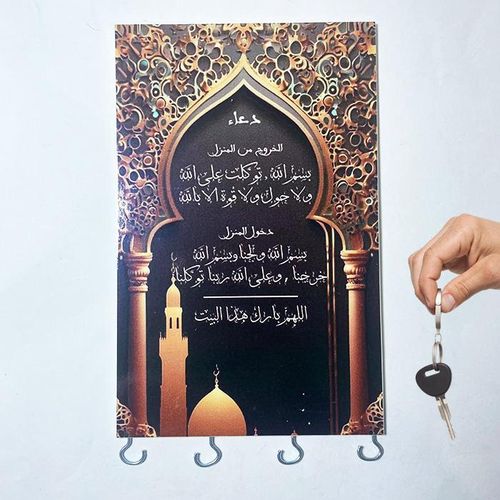 دعاء
الخروج من المنزل
بسم الله، توكلت على الله
ولا حول ولا قوة الا بالله
دخول المنزل
بسم الله ولجنا وبسم الله
خرجنا , وعلى الله ربنا توكلنا
اللهم بارك هذا البيت